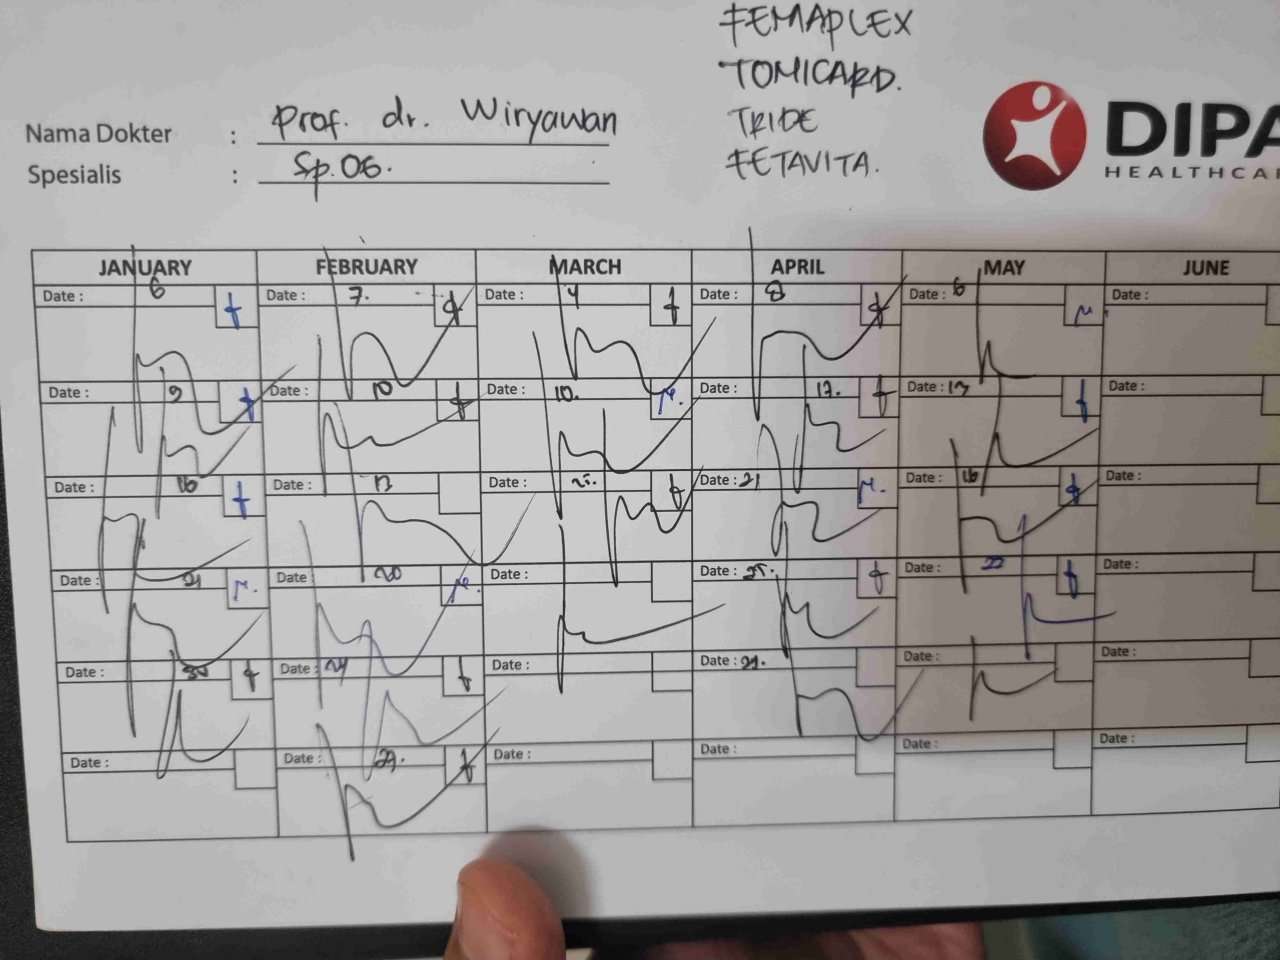 FEMAPLEX
TOMICARD.
TRIDE
FETAVITA.
DIPA
HEALTHCAR
Nama Dokter : Prof. dr. Wiryawan
Spesialis : Sp.OG.
JANUARY FEBRUARY MARCH APRIL MAY JUNE
Date : 6 Date : 7. Date : 4 Date : 8 Date : 6 Date :
Date : 9 Date : 10 Date : 10. Date : 17. Date : 13 Date :
Date : 16 Date : 13 Date : 25. Date : 21 Date : 16 Date :
Date : 21 Date : 20 Date : Date : 25. Date : 22 Date :
Date : 30 Date : 24 Date : Date : 29. Date : Date :
Date : Date : 27. Date : Date : Date : Date :